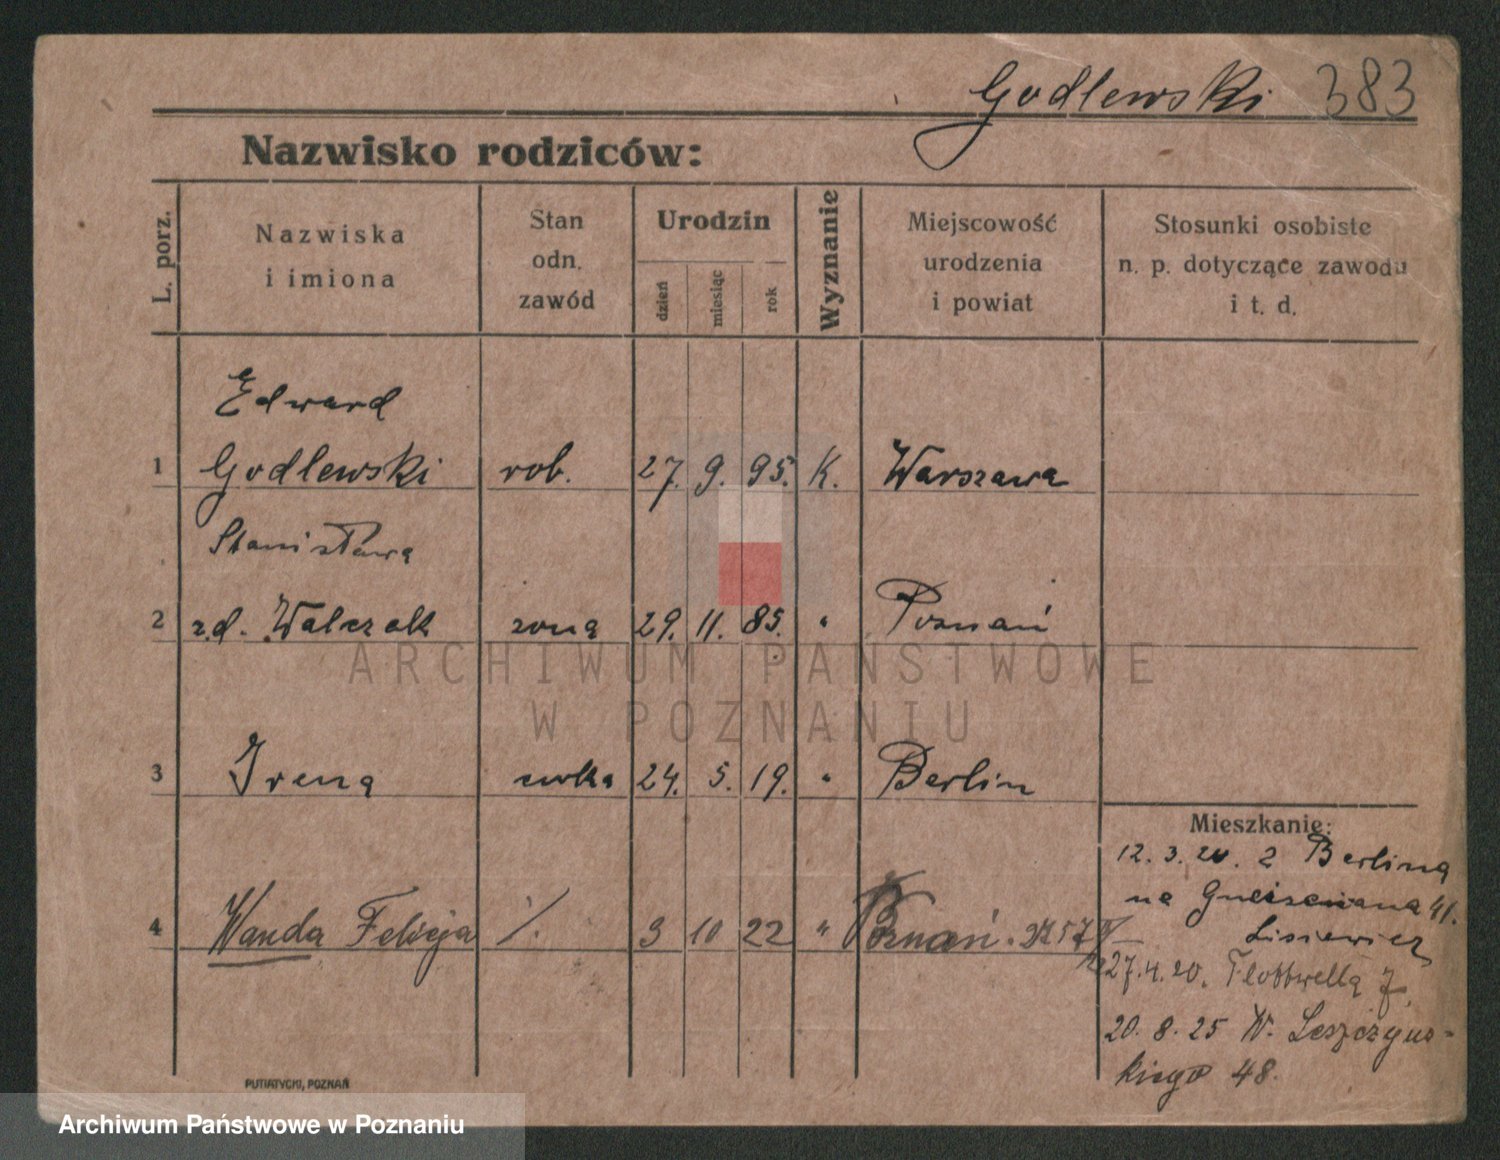 Godlewski 383
Nazwisko rodziców:
L. porz.
Nazwiska
i imiona
Stan
odn.
zawód
Urodzin
dzień
miesiąc
rok
Wyznanie
Miejscowość
urodzenia
i powiat
Stosunki osobiste
n. p. dotyczące zawodu
i t. d.
Edward
1 Godlewski rob. 27. 9. 95. K. Warszawa
Stanisława
2 z.d. Walczak żona 29. 11. 85. " Poznań
ARCHIWUM PAŃSTWOWE
W POZNANIU
3 Irena córka 24. 5. 19. " Berlin
Mieszkanie:
12. 3. 20. z Berlina
na Gneisenaua 41.
Lisiewicz
4 Wanda Felicja /. 3 10 22 " Poznań.
27.4.20. Flottwella 7.
20. 8. 25 W. Leszczyns-
kiego 48.
PUTIATYCKI, POZNAŃ
Archiwum Państwowe w Poznaniu